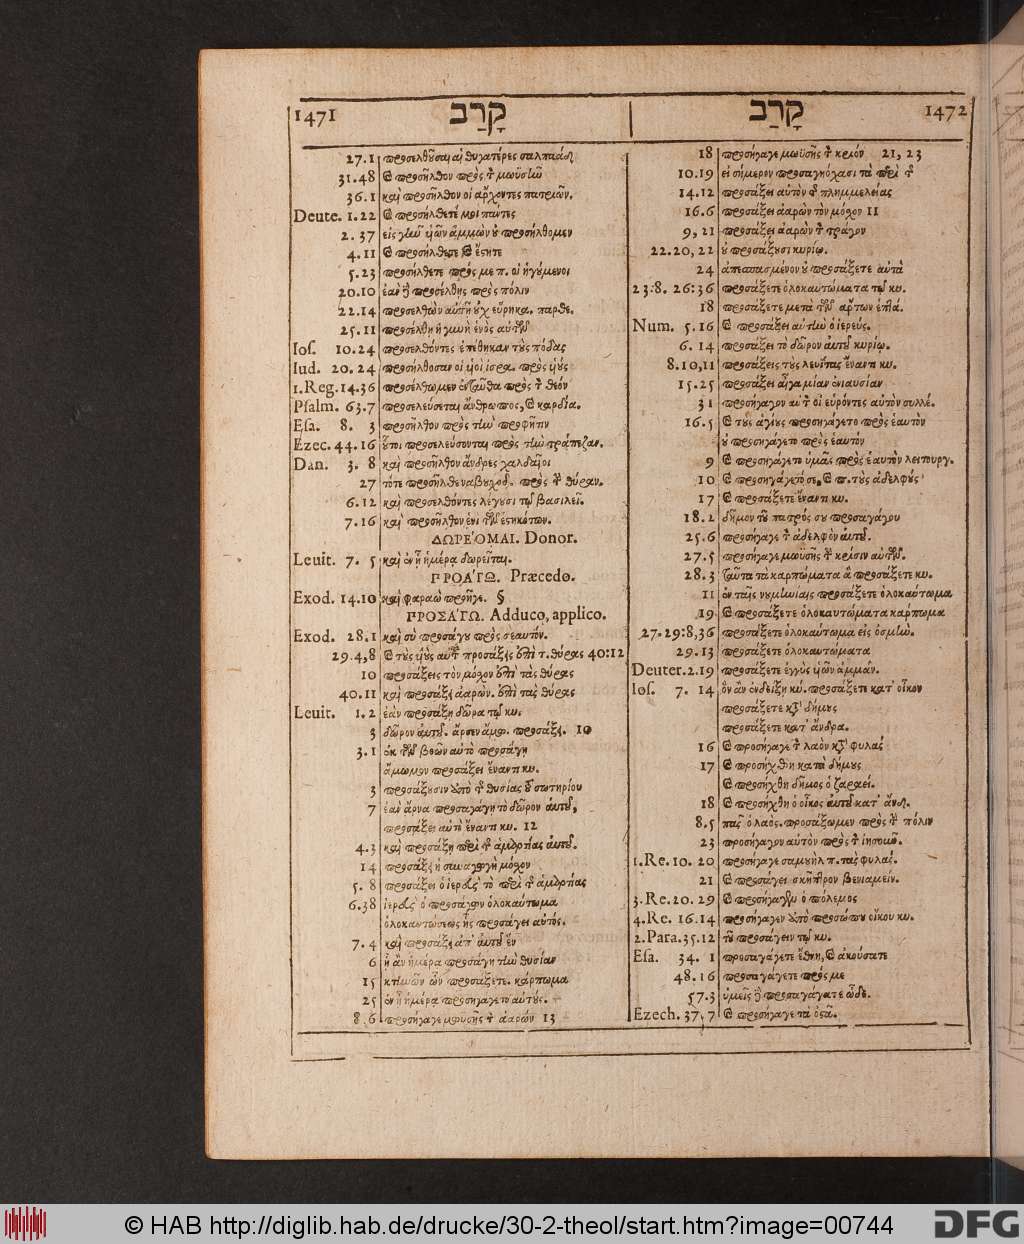 1471 קָרַב
27.1 προσελθοῦσαι αἱ θυγατέρες σαλπαάδ
31.48 καὶ προσῆλθον πρὸς τ μωϋσῆν
36.1 καὶ προσῆλθον οἱ ἄρχοντες πατριῶν.
Deute. 1.22 καὶ προσήλθετέ μοι πάντες
2.37 εἰς γῆν υἱῶν ἀμμὼν οὐ προσήλθομεν
4.11 καὶ προσήλθετε καὶ ἔστητε
5.23 προσήλθετε πρός με π. οἱ ἡγούμενοι
20.10 ἐὰν δὲ προσέλθης πρὸς πόλιν
22.14 προσελθὼν αὐτῇ οὐχ εὕρηκα. παρθε.
25.11 προσέλθη ἡ γυνὴ ἑνὸς αὐτῶν
Ios. 10.24 προσελθόντες ἐπέθηκαν τοὺς πόδας
Iud. 20.24 προσήλθοσαν οἱ υἱοὶ ἰσρα. πρὸς υἱοὺς
1.Reg.14.36 προσέλθωμεν ἐνταῦθα πρὸς τ θεόν
Psalm. 63.7 προσελεύσεται ἄνθρωπος, καὶ καρδία.
Esa. 8. 3 προσῆλθον πρὸς τὴν προφῆτιν
Ezec. 44.16 οὗτοι προσελεύσονται πρὸς τὴν τράπεζαν.
Dan. 3. 8 καὶ προσῆλθον ἄνδρες χαλδαῖοι
27 τότε προσῆλθε ναβουχοδ. πρὸς τ θύραν.
6.12 καὶ προσελθόντες λέγουσι τῷ βασιλεῖ.
7.16 καὶ προσῆλθον ἑνὶ τῶν ἑστηκότων.
ΔΩΡΕΌΜΑΙ. Donor.
Leuit. 7. 5 καὶ ἐν ᾗ ἡμέρα δωρεῖται.
ΠΡΟΆΓΩ. Præcedo.
Exod. 14.10 καὶ φαραὼ προῆγε. §
ΠΡΟΣΆΓΩ. Adduco, applico.
Exod. 28.1 καὶ σὺ προσάγου πρὸς σεαυτόν.
29.4,8 καὶ τοὺς υἱοὺς αὐτ προσάξεις ἐπὶ τ. θύρας 40:12
10 προσάξεις τὸν μόχον ἐπὶ τὰς θύρας
40.11 καὶ προσάξεις ἀαρὼν. ἐπὶ τὰς θύρας
Leuit. 1.2 ἐὰν προσάξη δῶρα τῷ κυ.
3 δῶρον αὐτοῦ. ἄρσεν ἄμω. προσάξει. 10
3.1 ἐκ τῶν βοῶν αὐτὸ προσάγη
ἄμωμον προσάξει ἔναντι κυ.
3 προσάξουσιν ἀπὸ τ θυσίας τοῦ σωτηρίου
7 ἐὰν ἄρνα προσαγάγη τὸ δῶρον αὐτοῦ,
προσάξει αὐτὸ ἔναντι κυ. 12
4.3 καὶ προσάξη περὶ τ ἁμαρτίας αὐτοῦ.
14 προσάξει ἡ συναγωγὴ μόχον
5. 8 προσάξει ὁ ἱερεὺς τὸ περὶ τ ἁμαρτίας
6.38 ἱερεὺς ὁ προσάγων ὁλοκαύτωμα
ὁλοκαυτώσεως ἧς προσάγει αὐτός.
7. 4 καὶ προσάξει ἀπ' αὐτοῦ ἓν
6 ᾗ ἂν ἡμέρα προσάγη τὴν θυσίαν
15 κτηνῶν ὧν προσάξετε. κάρπωμα
25 ἐν ᾗ ἡμέρα προσηγάγετο αὐτούς.
8.6 προσήγαγε μωϋσῆς τ ἀαρὼν 13
קָרַב 1472
18 προσήγαγε μωϋσῆς τ κριόν 21, 23
10.19 εἰ σήμερον προσαγηόχασι τὰ περὶ τ
14.12 προσάξει αὐτὸν τ πλημμελείας
16.6 προσάξει ἀαρὼν τὸν μόχον 11
9, 21 προσάξει ἀαρὼν τ τράγον
22.20, 22 οὐ προσάξουσι κυρίῳ.
24 ἀπεσπασμένον οὐ προσάξετε αὐτὰ
23:8. 26:36 προσάξετε ὁλοκαυτώματα τῷ κυ.
18 προσάξετε μετὰ τῶν ἄρτων ἑπτά.
Num. 5.16 καὶ προσάξει αὐτὴν ὁ ἱερεύς.
6. 14 προσάξει τὸ δῶρον αὐτοῦ κυρίῳ.
8.10,11 προσάξεις τοὺς λευίτας ἔναντι κυ.
15.25 προσάξει αἶγα μίαν ἐνιαυσίαν
31 προσήγαγον αὐτ οἱ εὑρόντες αὐτὸν συλλέ.
16.5 καὶ τοὺς ἁγίους προσηγάγετο πρὸς ἑαυτὸν
οὐ προσηγάγετο πρὸς ἑαυτόν
9 καὶ προσηγάγετο ὑμᾶς πρὸς ἑαυτὸν λειτουργ.
10 καὶ προσηγάγετό σε, καὶ π. τοὺς ἀδελφούς
17 καὶ προσάξετε ἔναντι κυ.
18.2 δῆμον τοῦ πατρός σου προσαγάγου
25.6 προσήγαγε τ ἀδελφὸν αὐτοῦ.
27.5 προσήγαγε μωϋσῆς τ κρίσιν αὐτῶν.
28.3 ταῦτα τὰ καρπώματα ἃ προσάξετε κυ.
11 ἐν ταῖς νυμηνίαις προσάξετε ὁλοκαύτωμα
19 καὶ προσάξετε ὁλοκαυτώματα κάρπωμα
27. 29:8,36 προσάξετε ὁλοκαύτωμα εἰς ὀσμὴν.
29.13 προσάξετε ὁλοκαυτώματα
Deuter. 2.19 προσάξετε ἐγγὺς υἱῶν ἀμμάν.
Ios. 7. 14 ὃν ἂν ἐνδείξη κυ. προσάξετε κατ' οἶκον
προσάξετε κατὰ δήμους
προσάξετε κατ' ἄνδρα.
16 καὶ προσήγαγε τ λαὸν κατὰ φυλάς
17 καὶ προσήχθη κατὰ δήμους
καὶ προσήχθη δῆμος ὁ ζαραεί.
18 καὶ προσήχθη ὁ οἶκος αὐτοῦ κατ' ἄνδ.
8.5 πᾶς ὁ λαὸς. προσάξωμεν πρὸς τ πόλιν
23 προσήγαγον αὐτὸν πρὸς τ ἰησοῦν.
1.Re. 10. 20 προσήγαγε σαμουὴλ π. τὰς φυλάς.
21 καὶ προσάγει σκῆπτρον βενιαμείν.
3.Re. 20. 29 καὶ προσήγαγεν ὁ πόλεμος
4.Re. 16.14 προσήγαγεν ἀπὸ προσώπου οἴκου κυ.
2.Para. 35.12 τοῦ προσάγειν τῷ κυ.
Esa. 34. 1 προσαγάγετε ἔθνη, καὶ ἀκούσατε
48.16 προσαγάγετε πρός με
57.3 ὑμεῖς δὲ προσαγάγατε ὧδε.
Ezech. 37.7 καὶ προσήγαγε τὰ ὀστᾶ.
© HAB http://diglib.hab.de/drucke/30-2-theol/start.htm?image=00744
DFG